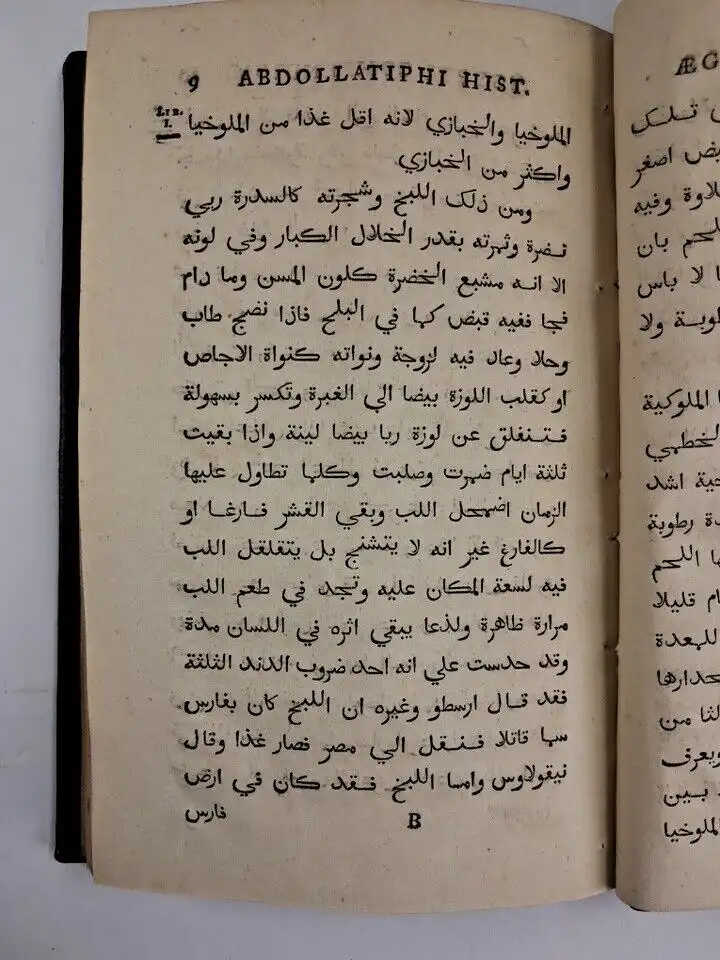 9 ABDOLLATIPHI HIST.
LIB. I.
الملوخيا والخبازي لانه اقل غذا من الملوخيا
واكثر من الخبازي
ومن ذلك اللبخ وشجرته كالسدرة ربي
نضرة وثمرته بقدر الخلال الكبار وفي لونه
الا انه مشبع الخضرة كلون المسن وما دام
فجا ففيه قبض كما في البلح فاذا نضج طاب
وحلا وعاد فيه لزوجة ونواته كنواة الاجاص
او كقلب اللوزة بيضا الي الغبرة وتكسر بسهولة
فتنفلق عن لوزة ريا بيضا لينة واذا بقيت
ثلثة ايام ضمرت وصلبت وكلما تطاول عليها
الزمان اضمحل اللب وبقي القشر فارغا او
كالفارغ غير انه لا يتشنج بل يتقلقل اللب
فيه لسعة المكان عليه وتجد في طعم اللب
مرارة ظاهرة ولذعا يبقي اثره في اللسان مدة
وقد حدست علي انه احد ضروب الدند الثلثة
فقد قال ارسطو وغيره ان اللبخ كان بفارس
سما قاتلا فنقل الي مصر فصار غذا وقال
نيقولاوس وامسا اللبخ فقد كان في ارض
B فارس
ÆG
تلك
بض اصغر
لاوة وفيه
لحم بان
ا لا باس
طوبة ولا
الملوكية
الخطمي
حية اشد
دة رطوبة
ها اللحم
ام قليلا
للبعدة
حدارها
لثا من
ويعرف
بين
لملوخيا